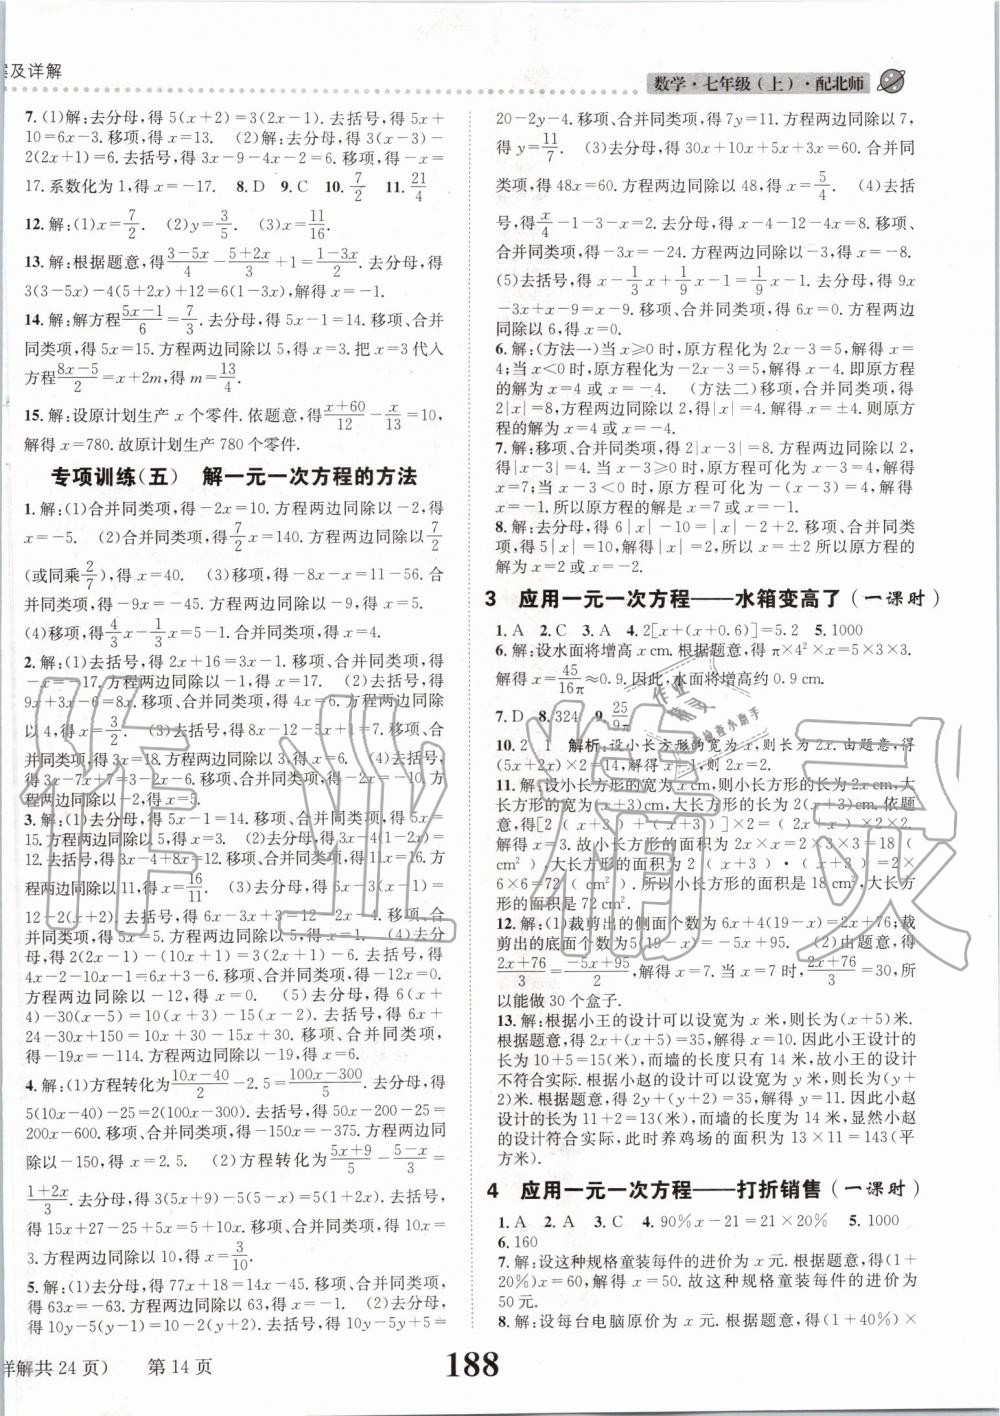 案及详解
数学·七年级(上)·配北师
7.(1)解:去分母,得 5(x+2)=3(2x-1).去括号,得 5x+
10=6x-3.移项,得 x=13.  (2)解:去分母,得 3(x-3)-
2(2x+1)=6.去括号,得 3x-9-4x-2=6.移项,得-x=
17.系数化为 1,得 x=-17.  8.D  9.C  10.7/2  11.21/4
12.解:(1)x=7/2.  (2)y=3/5.  (3)x=11/16.
13.解:根据题意,得(3-5x)/4-(5+2x)/3+1=(1-3x)/2.去分母,得
3(3-5x)-4(5+2x)+12=6(1-3x),解得 x=-1.
14.解:解方程(5x-1)/6=7/3.去分母,得 5x-1=14.移项、合并
同类项,得 5x=15.方程两边同除以 5,得 x=3.把 x=3 代入
方程(8x-5)/2=x+2m,得 m=13/4.
15.解:设原计划生产 x 个零件.依题意,得(x+60)/12-x/13=10,
解得 x=780.故原计划生产 780 个零件.
专项训练(五)  解一元一次方程的方法
1.解:(1)合并同类项,得-2x=10.方程两边同除以-2,得
x=-5.  (2)合并同类项,得7/2x=140.方程两边同除以7/2
(或同乘2/7),得 x=40.  (3)移项,得-8x-x=11-56.合
并同类项,得-9x=-45.方程两边同除以-9,得 x=5.
(4)移项,得4/3x-1/3x=5-1.合并同类项,得 x=4.
2.解:(1)去括号,得 2x+16=3x-1.移项、合并同类项,得
-x=-17.方程两边同除以-1,得 x=17.  (2)去括号,得
9x+3x-6=2x.移项、合并同类项,得 4x=6.方程两边同除
以 4,得 x=3/2.  (3)去括号,得 8x-12-5x+1=7.移项、合
并同类项,得 3x=18.方程两边同除以 3,得 x=6.  (4)去括号,得
4x-36x+7x=3-2x-6x.移项、合并同类项,得-2x=-10.方
程两边同除以-2,得 x=5.
3.解:(1)去分母,得 5x-1=14.移项、合并同类项,得 5x=
15.方程两边同除以 5,得 x=3.  (2)去分母,得 3x-4(1-2x)=
12.去括号,得 3x-4+8x=12.移项、合并同类项,得 11x=16.方
程两边同除以 11,得 x=16/11.  (3)去分母,得 6x-3(x-1)=
12-2(x+2).去括号,得 6x-3x+3=12-2x-4.移项、合并同
类项,得 5x=5.方程两边同除以 5,得 x=1.  (4)去分
母,得 2(2x-1)-(10x+1)=3(2x+1)-6.去括号,得
4x-2-10x-1=6x+3-6.移项、合并同类项,得-12x=0.
方程两边同除以-12,得 x=0.  (5)去分母,得 6(x+
4)-30(x-5)=10(x+3)-15(x-2).去括号,得 6x+
24-30x+150=10x+30-15x+30.移项、合并同类项,
得-19x=-114.方程两边同除以-19,得 x=6.
4.解:(1)方程转化为(10x-40)/2-2.5=(100x-300)/5.去分母,得
5(10x-40)-25=2(100x-300).去括号,得 50x-200-25=
200x-600.移项、合并同类项,得-150x=-375.方程两边同
除以-150,得 x=2.5.  (2)方程转化为(5x+9)/5-(5-x)/3=
(1+2x)/3.去分母,得 3(5x+9)-5(5-x)=5(1+2x).去括号,得
15x+27-25+5x=5+10x.移项、合并同类项,得 10x=
3.方程两边同除以 10,得 x=3/10.
5.解:(1)去分母,得 77x+18=14x-45.移项、合并同类项,得
63x=-63.方程两边同除以 63,得 x=-1.  (2)去分母,
得 10y-5(y-1)=20-2(y+2).去括号,得 10y-5y+5=
20-2y-4.移项、合并同类项,得 7y=11.方程两边同除以 7,
得 y=11/7.  (3)去分母,得 30x+10x+5x+3x=60.合并同
类项,得 48x=60.方程两边同除以 48,得 x=5/4.  (4)去括
号,得x/4-1-3-x=2.去分母,得 x-4-12-4x=8.移项、
合并同类项,得-3x=24.方程两边同除以-3,得 x=-8.
(5)去括号,得 x-1/3x+1/9x=1/9x-1.去分母,得 9x
-3x+x-9=x-9.移项、合并同类项,得 6x=0.方程两边
同除以 6,得 x=0.
6.解:(方法一)当 x≥0 时,原方程化为 2x-3=5,解得 x=
4;当 x<0 时,原方程化为-2x-3=5,解得 x=-4.即原方
程的解为 x=4 或 x=-4.  (方法二)移项,合并同类项,得
2|x|=8,方程两边同除以 2,得|x|=4.解得 x=±4.则原方
程的解为 x=4 或 x=-4.
7.解:移项、合并同类项,得 2|x-3|=8.方程两边同除以 2,
得|x-3|=4.当 x-3≥0 时,原方程可化为 x-3=4,解得
x=7;当 x-3<0 时,原方程可化为-(x-3)=4,解得
x=-1.所以原方程的解是 x=7 或 x=-1.
8.解:去分母,得 6|x|-10=|x|-2+2.移项、合并同类
项,得 5|x|=10,解得|x|=2,所以 x=±2 所以原方程的
解为 x=2 或 x=-2.
3  应用一元一次方程——水箱变高了(一课时)
1.A  2.C  3.A  4.2[x+(x+0.6)]=5.2  5.1000
6.解:设水面将增高 x cm.根据题意,得 π×4²×x=5×3×3.
解得 x=45/16π≈0.9.因此,水面将增高约 0.9 cm.
7.D  8.324  9.25/9π
10.2  1  解析:设小长方形的宽为 x,则长为 2x.由题意,得
(5x+2x)×2=14,解得 x=1,故 2x=2.
11.解:设小长方形的宽为 x cm,则小长方形的长为 2x cm,大
长方形的宽为(x+3)cm,大长方形的长为 2(x+3)cm.依题
意,得[2(x+3)+(x+3)]×2=(2x+x)×2×2.
解得 x=3.故小长方形的面积为 2x×x=2×3×3=18(
cm²),大长方形的面积为 2(x+3)·(x+3)=2×
6×6=72(cm²).所以小长方形的面积是 18 cm²,大长方
形的面积是 72 cm².
12.解:(1)裁剪出的侧面个数为 6x+4(19-x)=2x+76;裁
剪出的底面个数为5(19-x)=-5x+95.  (2)由题意,得
(2x+76)/3=(-5x+95)/2,解得 x=7.当 x=7 时,(2x+76)/3=30,所
以能做 30 个盒子.
13.解:根据小王的设计可以设宽为 x 米,则长为(x+5)米.
根据题意,得 2x+(x+5)=35,解得 x=10.因此小王设计的
长为 10+5=15(米),而墙的长度只有 14 米,小王的设计
不符合实际.根据小赵的设计可以设宽为 y 米,则长为(y+
2)米.根据题意,得 2y+(y+2)=35,解得 y=11.因此小赵
设计的长为 11+2=13(米),而墙的长度为 14 米,显然小赵
的设计符合实际,此时养鸡场的面积为 13×11=143(平
方米).
4  应用一元一次方程——打折销售(一课时)
1.A  2.A  3.C  4.90%x-21=21×20%  5.1000
6.160
7.解:设这种规格童装每件的进价为 x 元.根据题意,得(1+
20%)x=60,解得 x=50.故这种规格童装每件的进价为
50 元.
8.解:设每台电脑原价为 x 元.根据题意,得(1+80%)×
详解共 24 页)  第 14 页
188
作业精灵
作业
精灵
检查小助手